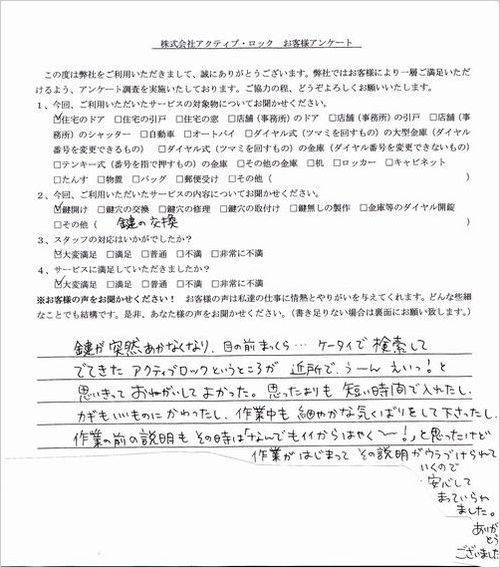 株式会社アクティブ・ロック お客様アンケート
この度は弊社をご利用いただきまして、誠にありがとうございます。弊社ではお客様により一層ご満足いただ
けるよう、アンケート調査を実施いたしております。ご協力の程、どうぞよろしくお願いいたします。
1、今回、ご利用いただいたサービスの対象物についてお聞かせください。
☑住宅のドア □住宅の引戸 □住宅の窓 □店舗(事務所)のドア □店舗(事務所)の引戸 □店舗(事
務所)のシャッター □自動車 □オートバイ □ダイヤル式(ツマミを回すもの)の大型金庫(ダイヤル
番号を変更できるもの) □ダイヤル式(ツマミを回すもの)の金庫(ダイヤル番号を変更できないもの)
□テンキー式(番号を指で押すもの)の金庫 □その他の金庫 □机 □ロッカー □キャビネット
□たんす □物置 □バッグ □郵便受け □その他( )
2、今回、ご利用いただいたサービスの内容についてお聞かせください。
☑鍵開け □鍵穴の交換 □鍵穴の修理 □鍵穴の取付け □鍵無しの製作 □金庫等のダイヤル開錠
□その他( 鍵の交換 )
3、スタッフの対応はいかがでしたか?
☑大変満足 □満足 □普通 □不満 □非常に不満
4、サービスに満足していただきましたか?
☑大変満足 □満足 □普通 □不満 □非常に不満
※お客様の声をお聞かせください! お客様の声は私達の仕事に情熱とやりがいを与えてくれます。どんな些細
なことでも結構です。是非、あなた様の声をお聞かせください。(書き足りない場合は裏面にお願い致します。)
鍵が突然あかなくなり、目の前まっくら… ケータイで検索して
でてきたアクティブロックというところが 近所で、うーん えいっ!と
思いきっておねがいしてよかった。思ったよりも短い時間で入れたし、
カギもいいものにかわったし、作業中も細やかな気くばりをして下さったし、
作業の前の説明もその時は「なんでもイイからはやく〜!」と思ったけど
作業がはじまって その説明がウラづけられて
いくので
安心して
まっていられ
ました。
ありが
とう
ございました